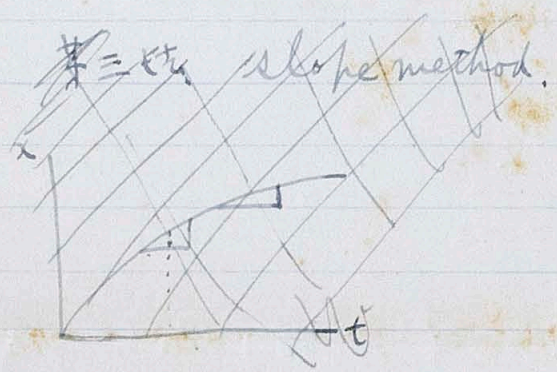 第三法 slope method.
x
t